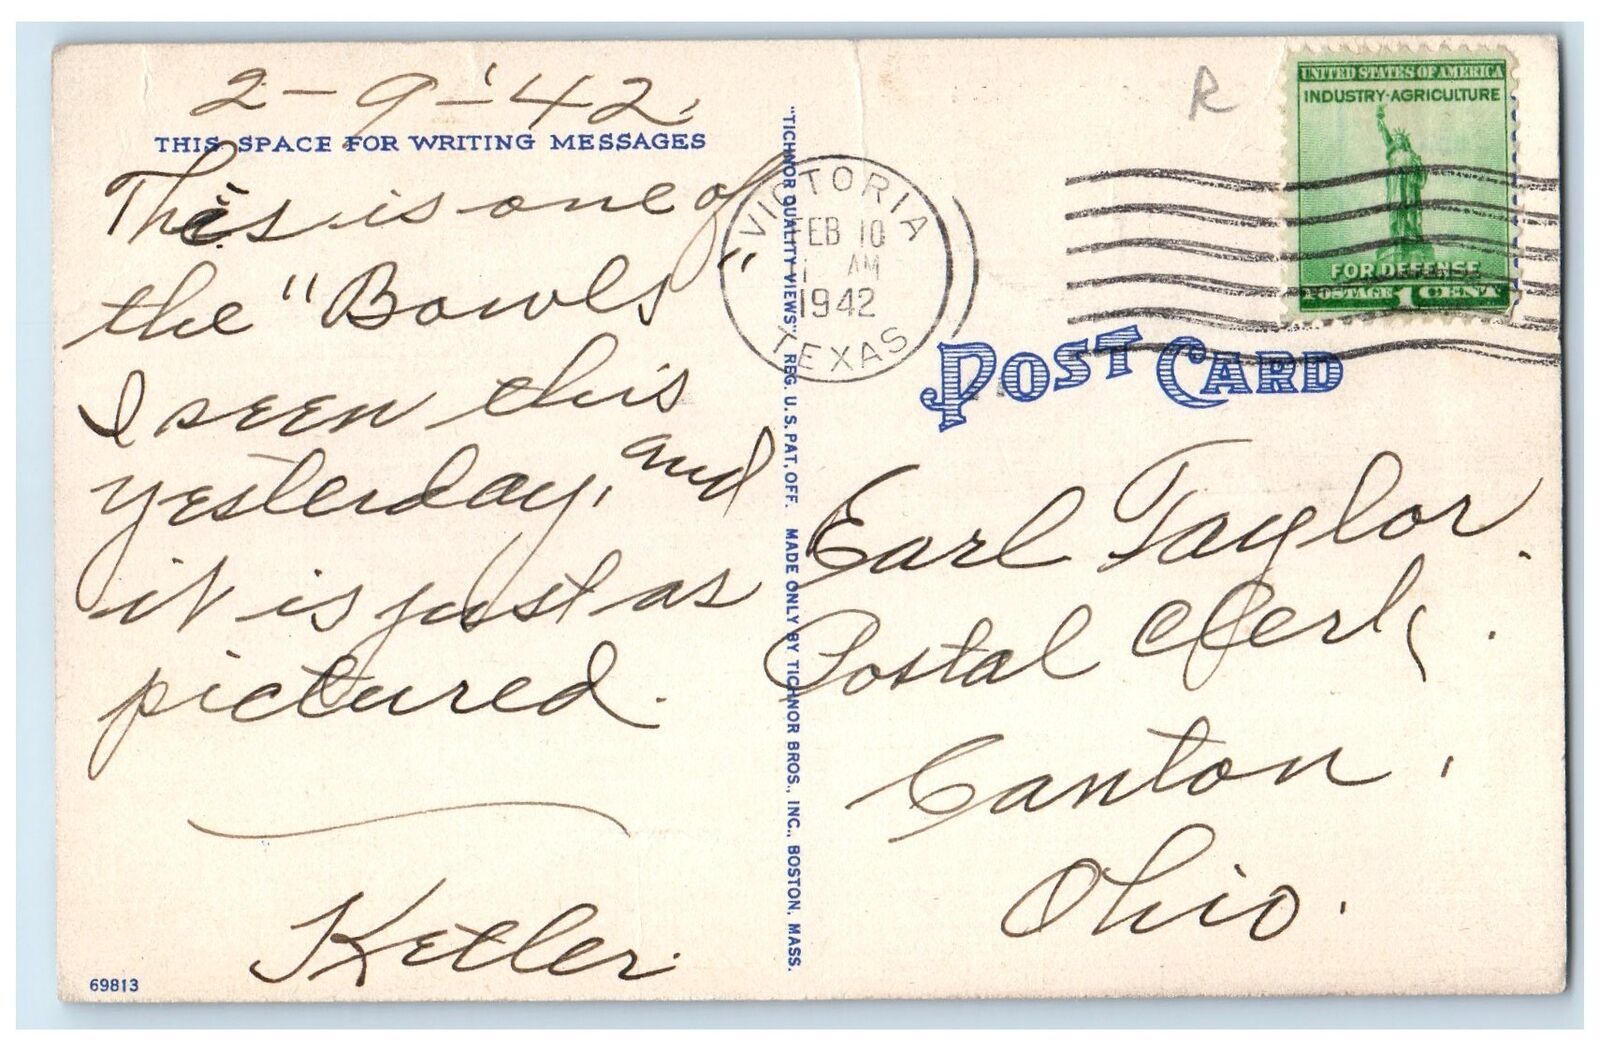 2-9-'42.
THIS SPACE FOR WRITING MESSAGES
This is one of
the "Bowls"
I seen this
yesterday, and
it is just as
pictured.
Ketler.
69813
"TICHNOR QUALITY VIEWS" REG. U.S. PAT. OFF. MADE ONLY BY TICHNOR BROS., INC., BOSTON, MASS.
VICTORIA
FEB 10
1 AM
1942
TEXAS
R
UNITED STATES OF AMERICA
INDUSTRY-AGRICULTURE
FOR DEFENSE
POSTAGE 1 CENT
POST CARD
Earl Taylor.
Postal Clerk.
Canton,
Ohio.